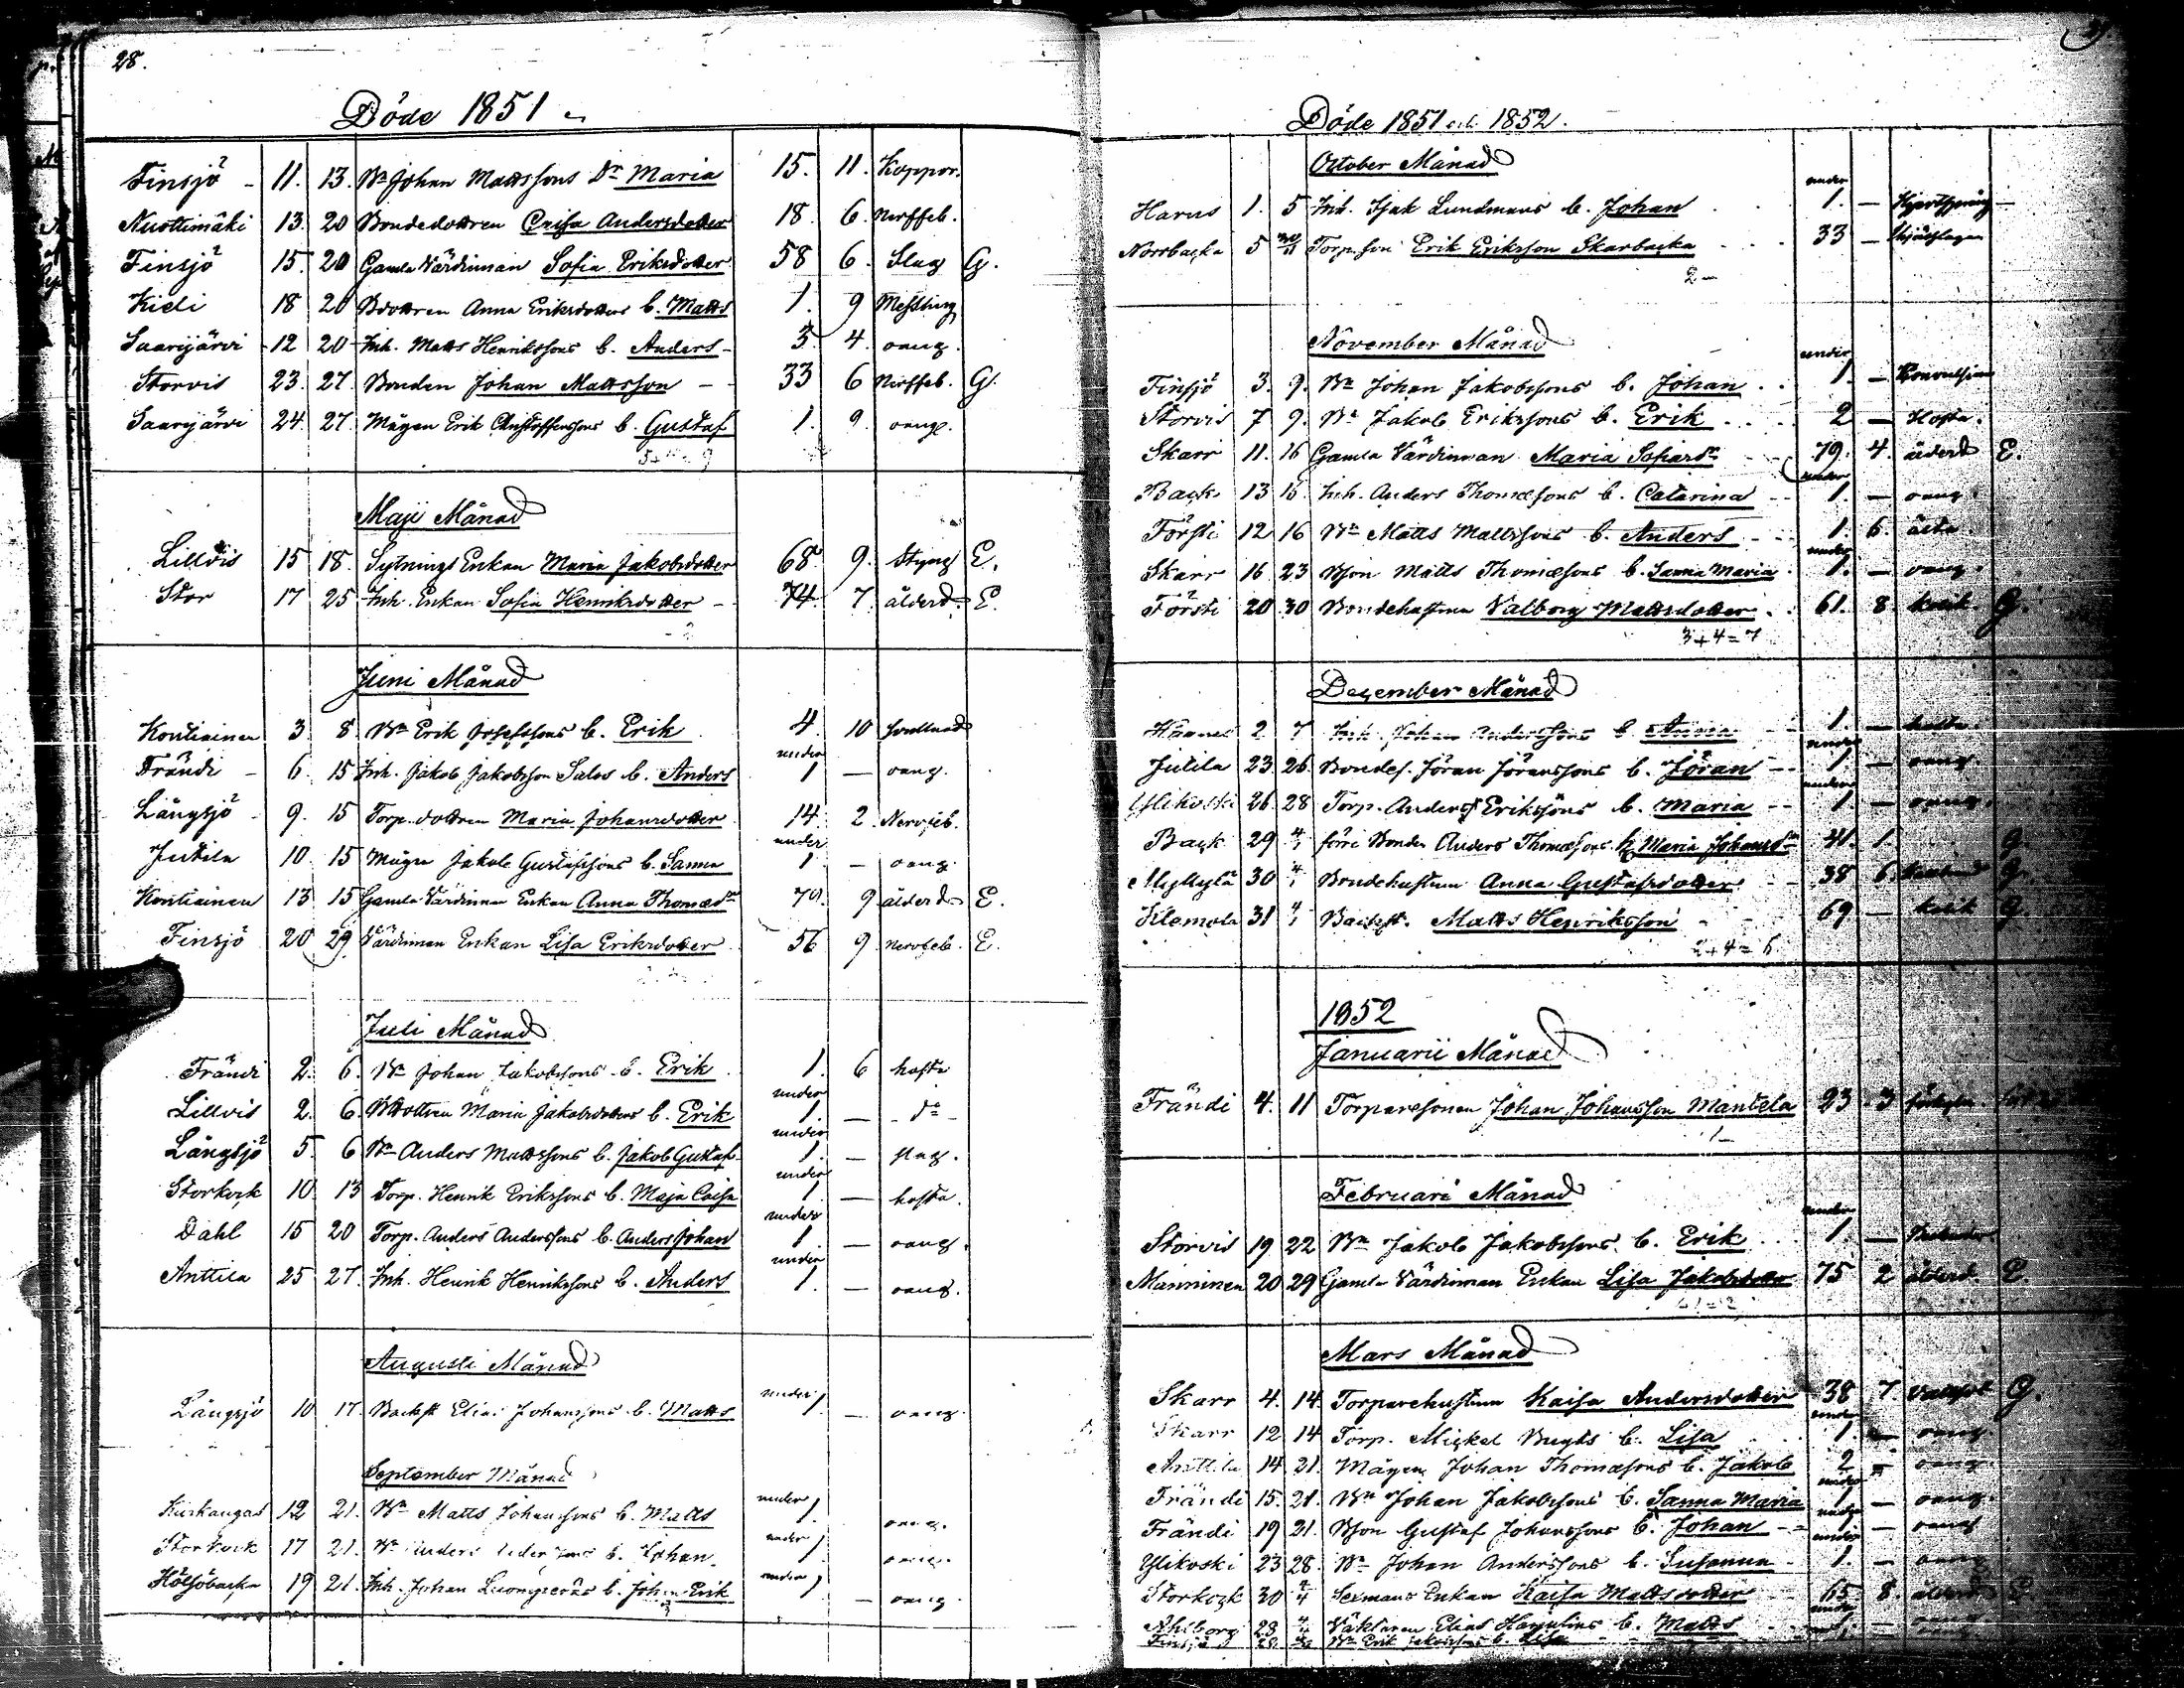 28.
Döde 1851
Finsjö 11. 13. Bn Johan Mattssons Dr Maria 15. 11. Koppor.
Nuottimäki 13. 20 Bondedottren Caisa Andersdotter 18. 6. Nerffeb.
Finsjö 15. 20 Gamla Värdinnan Sofia Eriksdotter 58 6. Slag G.
Kieli 18 20 Bdottren Anna Eriksdotters b. Matts 1. 9 Messling
Saarijärvi 12 20 Inh. Matts Henrikssons b. Anders 3 4. oang.
Storvis 23. 27. Bonden Johan Mattsson 33 6 Nerffeb. G.
Saarijärvi 24. 27. Mågen Erik Christoffersons b. Gustaf 1. 9. oang.
Maji Månad
Lillvis 15 18. Sytnings Enkan Maria Jakobsdotter 68. 9. Styng E.
Stor 17 25 Inh. Enkan Sofia Henriksdotter 74. 7. ålderd. E.
Juni Månad
Kontiainen 3. 8. Bn Erik Josefssons b. Erik 4. 10
Frändi 6. 15 Inh. Jakob Jakobsson Salos b. Anders under 1 — oang.
Långsjö 9. 15 Torp. dottren Maria Johansdotter 14. 2. Nervfeb.
Jutila 10. 15 Mågen Jakob Gustafssons b. Sanna under 1 — oang.
Kontiainen 13 15 Gamla Värdinnan Enkan Anna Thomædr 79. 9 ålderd E.
Finsjö 20 29. Värdinnan Enkan Lisa Eriksdotter 56 9. nervfeb. E.
Juli Månad
Frändi 2. 6. Bn Johan Jakobssons b. Erik 1. 6 hosta
Lillvis 2. 6. Bdottren Maria Jakobsdotters b. Erik under 1. — do
Långsjö 5. 6 Bn Anders Mattssons b. Jakob Gustaf under 1. — slag.
Storkock 10. 13 Torp. Henrik Erikssons b. Maja Caisa under 1. — hosta.
Dahl 15 20 Torp. Anders Anderssons b. Anders Johan under 1. — oang.
Anttila 25 27. Inh. Henrik Henrikssons b. Anders under 1. — oang.
Augusti Månad
Långsjö 10 17. Backst Elias Johanssons b. Matts under 1. — oang.
September Månad
Kuskangas 12 21. Bn Matts Johanssons b. Matts under 1 oang.
Storkock 17 21. Bn Anders b. Johan under 1 oang.
Höljöbacka 19 21. Inh. Johan b. Johan Erik under 1 — oang.
Döde 1851 och 1852.
October Månad
Harus 1. 5 Inh. Isak Lundmans b. Johan under 1. — Hjertsprång
Norrbacka 5 Torp.son Erik Eriksson Skarbacka 33 —
2 —
November Månad
Finsjö 3. 9. Bn Johan Jakobssons b. Johan under 1. — Konvulsion
Storvis 7 9. Bn Jakob Erikssons b. Erik 2 — Hosta.
Skarr 11. 16 Gamla Värdinnan Maria Safiasdr 79. 4. ålderd E.
Back 13 16. Inh. Anders Thomæsons b. Catarina under 1. — oang.
Försti 12 16 Bn Matts Mattssons b. Anders 1. 6.
Skarr 16. 23 Bson Matts Thomæsons b. Sanna Maria under 1. — oang.
Försti 20 30 Bondehustrun Valborg Mattsdotter 61. 8. kolik. G.
3+4=7
December Månad
2 7 Inh. Johan Anderssons b. Anna 1. — hosta.
Jutila 23 26. Bondes. Jöran Jöranssons b. Jöran under 1. — oang.
Ylikoski 26 28 Torp. Anders Erikssons b. Maria under 1. — oang.
Back 29 4/1 förre Bonden Anders Thomæsons h. Maria Johansdr 41. 1. G.
Myllylä 30 4/1 Bondehustrun Anna Gustafsdotter 38 6. G.
Klemola 31 4/1 Backst. Matts Henriksson 69 — kolik G.
2+4=6
1852
Januarii Månad
Frändi 4. 11 Torparesonen Johan Johansson Mäntela 23 3
1 —
Februari Månad
Storvis 19 22 Bn Jakob Jakobssons b. Erik under 1. —
Manninen 20 29 Gamla Värdinnan Enkan Lisa Jakobsdotter 75 2 ålderd. E
Mars Månad
Skarr 4. 14. Torparehustrun Kaisa Andersdotter 38 7. G.
Skarr 12 14 Torp. Mickel Bughts b. Lisa under 1. — oang.
Anttila 14 21. Mågen Johan Thomæsons b. Jakob 2 — oang.
Frändi 15. 21. Bn Johan Jakobssons b. Sanna Maria under 1 — oang.
Frändi 19 21. Bson Gustaf Johanssons b. Johan under 1 — oang
Ylikoski 23 28. Bn Johan Anderssons b. Susanna under 1. — oang
Storkock 30 4/4 Sexmans Enkan Kaisa Mattsdotter 65 8. ålderd. E
Ahlborg 28 4/4 Väktaren Elias Harjulins b. Matts under 1. — oang
Finsjö 28 Bn Erik Jakobssons b. Lisa